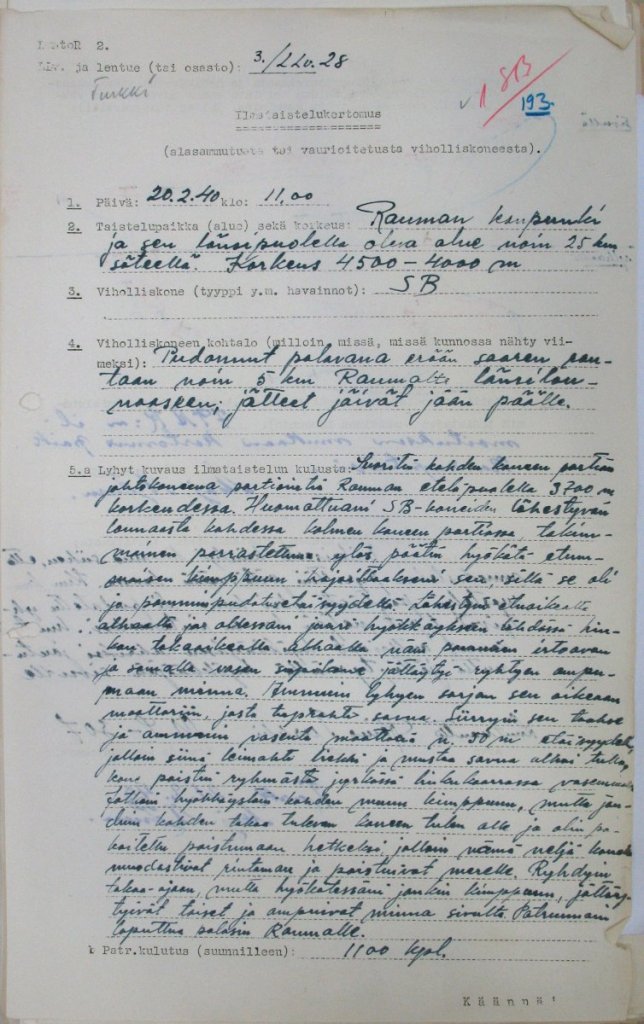 LentoR 2.
LLv. ja lentue (tai osasto): 3./LLv.28
Turkki
✓ 1 SB
193.
Ilmataistelukertomus
(alasammutusta tai vaurioitetusta viholliskoneesta).
1. Päivä: 20.2.40 klo: 11.00
2. Taistelupaikka (alue) sekä korkeus: Rauman kaupunki
ja sen länsipuolella oleva alue noin 25 km
säteellä. Korkeus 4500-4000 m
3. Viholliskone (tyyppi y.m. havainnot): SB
4. Viholliskoneen kohtalo (milloin, missä, missä kunnossa nähty vii-
meksi): Pudonnut palavana erään saaren ran-
taan noin 5 km Raumalta länsilou-
naaseen; jätteet jäivät jään päälle.
5.a Lyhyt kuvaus ilmataistelun kulusta: Suoritin kahden koneen partion
johtokoneena partiointia Rauman eteläpuolella 3700 m
korkeudessa. Huomattuani SB-koneiden lähestyvän
lounaasta kahdessa kolmen koneen partiossa, takim-
mainen porrastettuna ylös, päätin hyökätä etum-
maisen kimppuun hajoittaakseni sen, sillä se oli
jo pomminpudotusetäisyydellä. Lähestyin etuoikealta
alhaalta ja ollessani hyökkäykseen lähdössä
takaoikealla alhaalla näin pommien irtoavan
ja samalla vasen jättäytyi ryhtyen ampu-
maan minua. Ammuin lyhyen sarjan sen oikeaan
moottoriin, josta tuprahti savua. Siirryin sen taakse
ja ammuin vasenta moottoria n. 50 m etäisyydeltä,
jolloin siinä leimahti liekki ja mustaa savua alkoi tulla,
kone poistui ryhmästä jyrkässä liukukaarrossa vasemmalle.
Jatkoin hyökkäystäni kahden muun kimppuun, mutta jou-
duin kahden takaa tulevan koneen tulen alle ja olin pa-
koitettu poistumaan hetkeksi jolloin nämä neljä konetta
muodostivat rintaman ja poistuivat merelle. Ryhdyin
takaa-ajoon, mutta hyökätessäni jonkin kimppuun, jättäy-
tyivät toiset ja ampuivat minua sivulta. Patruunain
loputtua palasin Raumalle.
b Patr.kulutus (suunnilleen): 1100 kpl.
Käännä!